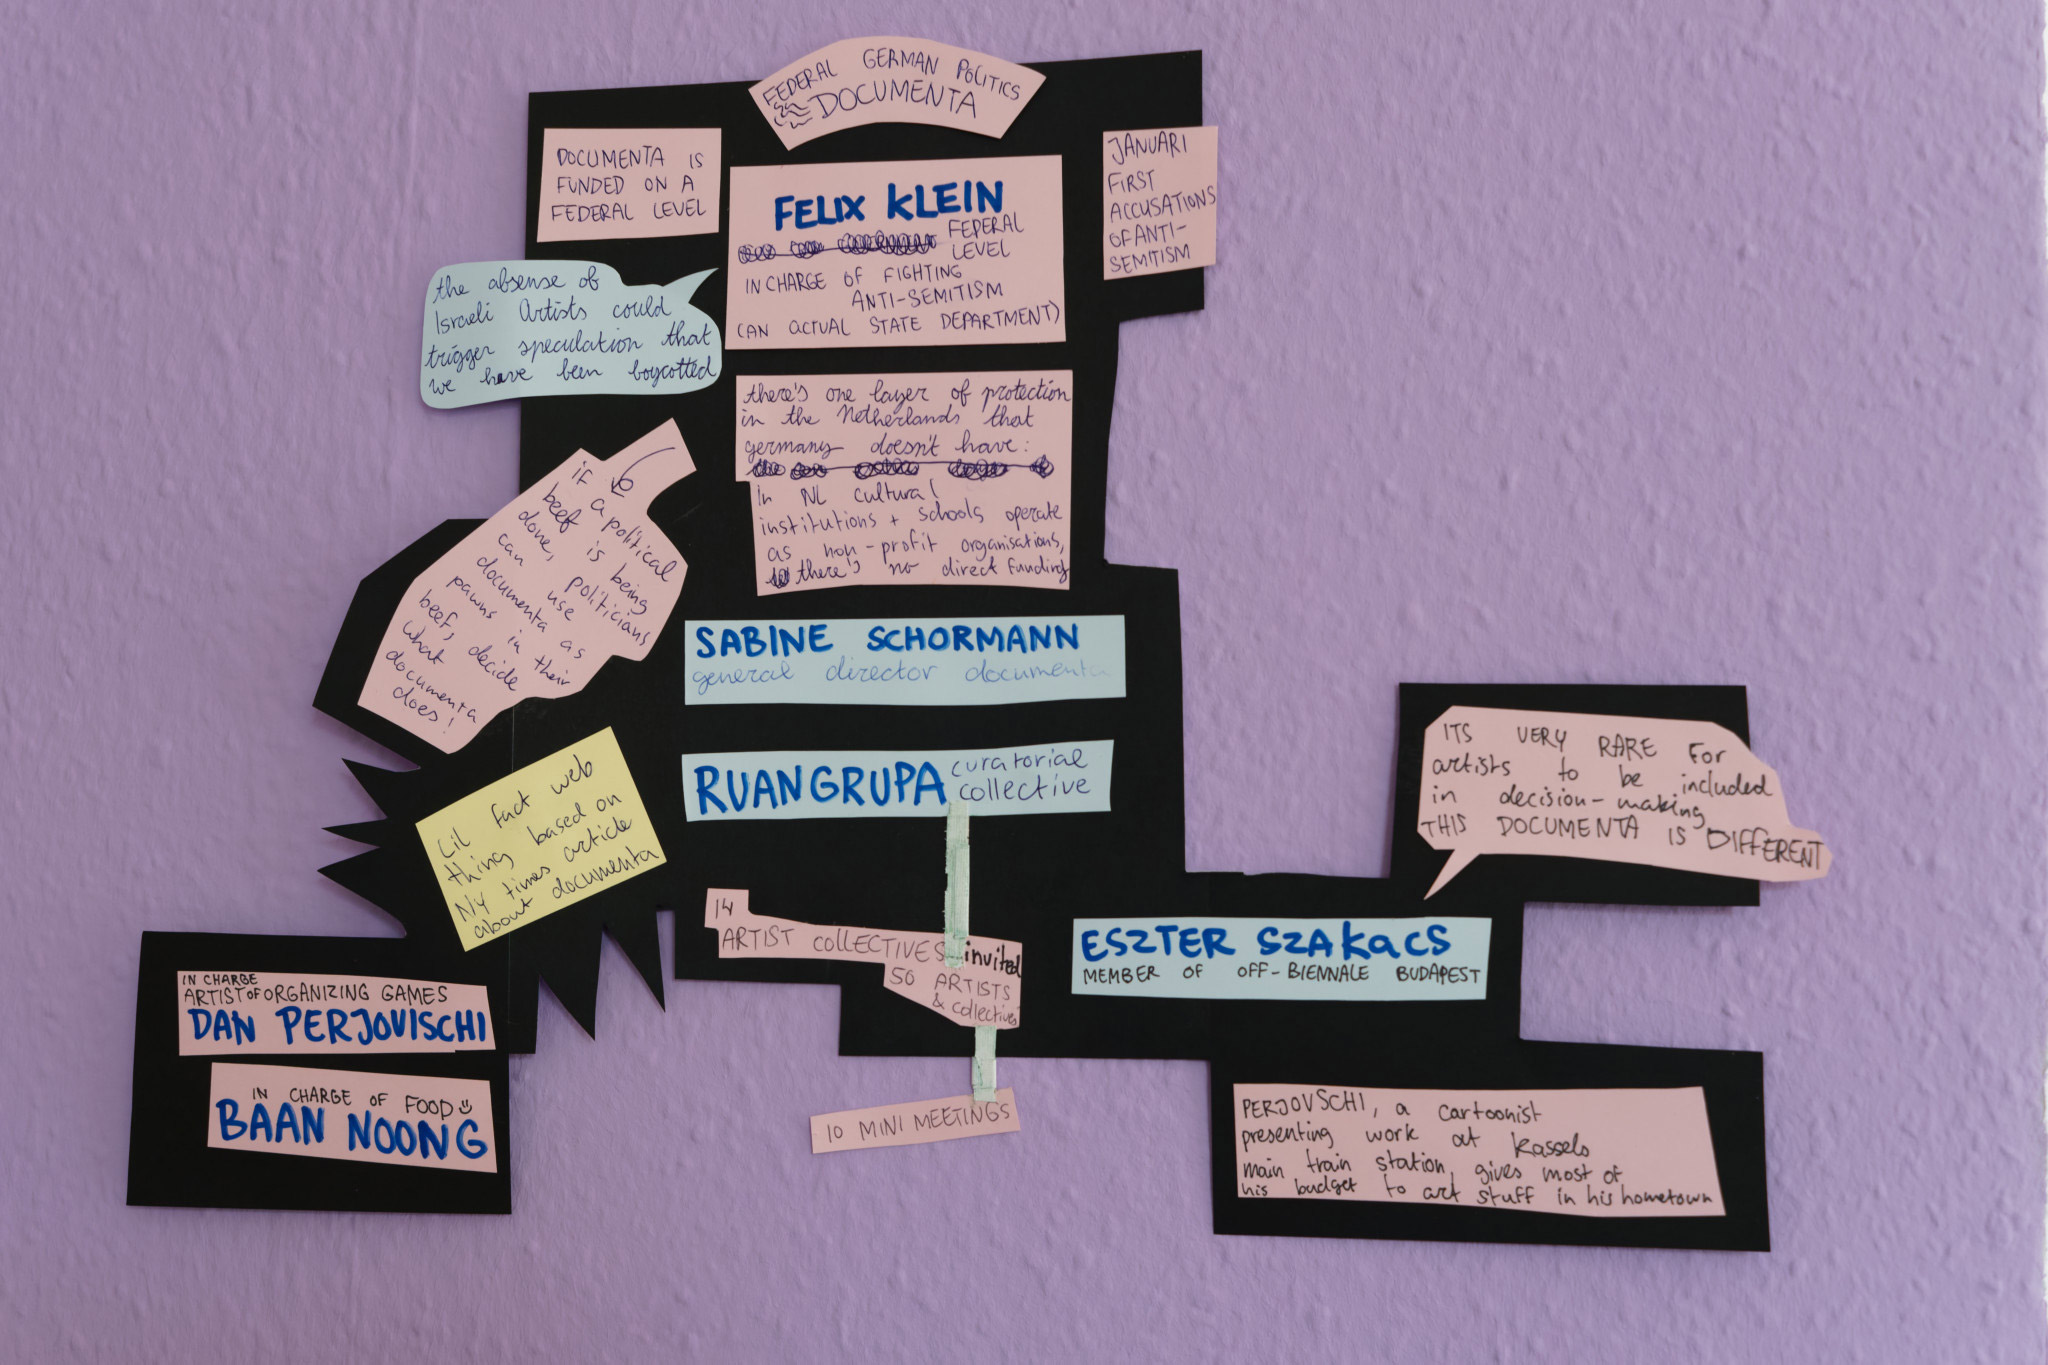 FEDERAL GERMAN POLITICS
DOCUMENTA
DOCUMENTA IS
FUNDED ON A
FEDERAL LEVEL
FELIX KLEIN
FEDERAL
LEVEL
IN CHARGE OF FIGHTING
ANTI-SEMITISM
(AN ACTUAL STATE DEPARTMENT)
JANUARI
FIRST
ACCUSATIONS
OF ANTI-
SEMITISM
the absense of
Israeli Artists could
trigger speculation that
we have been boycotted
there's one layer of protection
in the Netherlands that
germany doesn't have:
in NL cultural
institutions + schools operate
as non-profit organisations,
there's no direct funding
if a political
beef is being
done, politicians
can use
documenta as
pawns in their
beef, decide
what
documenta
does!
SABINE SCHORMANN
general director documenta
RUANGRUPA curatorial
collective
Lil fact web
thing based on
NY times article
about documenta
ITS VERY RARE For
artists to be included
in decision-making
THIS DOCUMENTA IS DIFFERENT
14
ARTIST COLLECTIVES invited
50 ARTISTS
& collectives
10 MINI MEETINGS
ESZTER SZAKACS
MEMBER OF OFF-BIENNALE BUDAPEST
IN CHARGE
ARTIST OF ORGANIZING GAMES
DAN PERJOVISCHI
IN CHARGE OF FOOD
BAAN NOONG
PERJOVSCHI, a cartoonist
presenting work at Kassels
main train station, gives most of
his budget to art stuff in his hometown